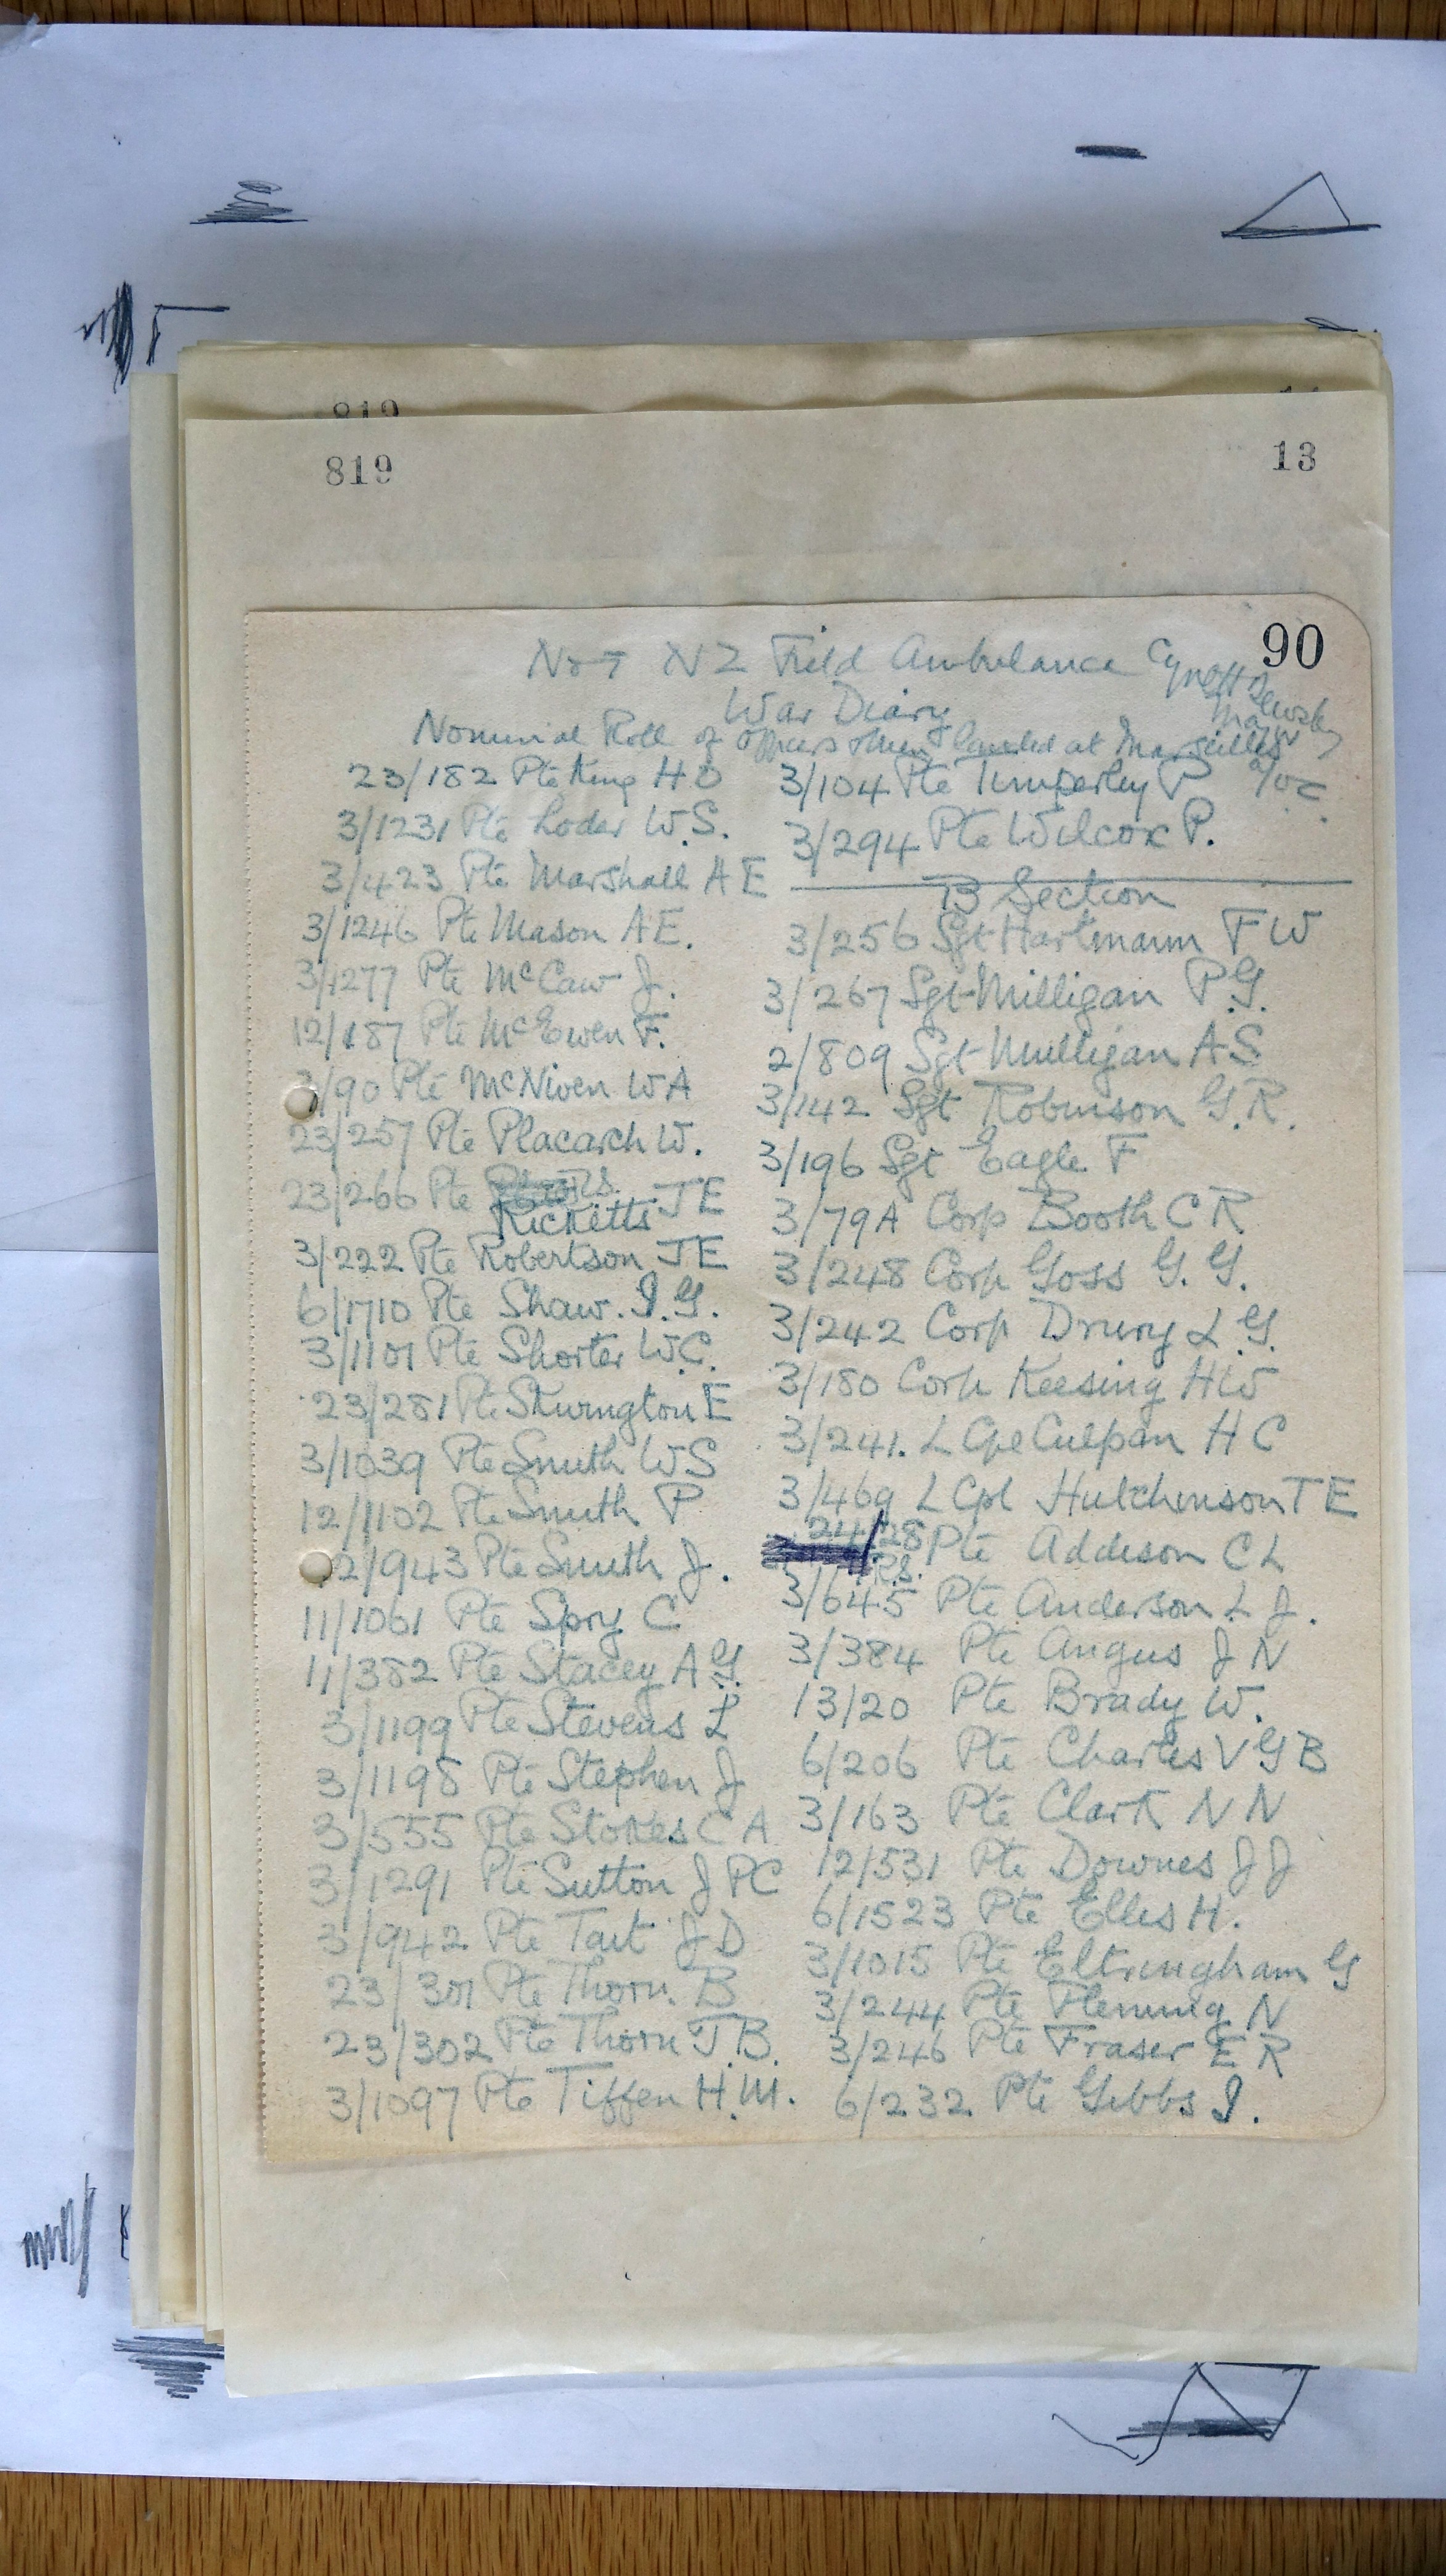 819
819 13
90
No 1 N Z Field Ambulance
War Diary
Nominal Roll of Officers & Men landed at Marseilles
23/182 Pte King H O
3/1231 Pte Loder W.S.
3/423 Pte Marshall A E
3/1246 Pte Mason A E.
3/1277 Pte McCaw J.
12/187 Pte McEwen F.
3/90 Pte McNiven W A
23/257 Pte Placarch W.
23/266 Pte Ricketts J E
3/222 Pte Robertson J E
6/1710 Pte Shaw. I. G.
3/1101 Pte Shorter W.C.
23/281 Pte Skurngton E
3/1039 Pte Smith W S
12/1102 Pte Smith P
12/943 Pte Smith J.
11/1061 Pte Spry C
11/382 Pte Stacey A G.
3/1199 Pte Stevens L
3/1198 Pte Stephen J
3/555 Pte Stokes C A
3/1291 Pte Sutton J P C
3/942 Pte Tait J D
23/301 Pte Thorn. B
23/302 Pte Thorn J. B.
3/1097 Pte Tiffen H. M.
3/104 Pte Timperley P
3/294 Pte Wilcox P.
B Section
3/256 Sgt Hartmann F W
3/267 Sgt Milligan P G.
2/809 Sgt Mulligan A S
3/142 Sgt Robinson G. R.
3/196 Sgt Eagle F
3/79A Corp Booth C R
3/248 Corp Goss G. G.
3/242 Corp Drury L G.
3/180 Corp Keesing H W
3/241. L Cpl Culpan H C
3/469 L Cpl Hutchinson T E
24/28 Pte Addison C L
R.S.
3/645 Pte Anderson L J.
3/384 Pte Angus J N
13/20 Pte Brady W.
6/206 Pte Charles V G B
3/163 Pte Clark N N
12/531 Pte Downes J J
6/1523 Pte Elles H.
3/1015 Pte Eltringham G
3/244 Pte Fleming N
3/246 Pte Fraser E R
6/232 Pte Gibbs I.